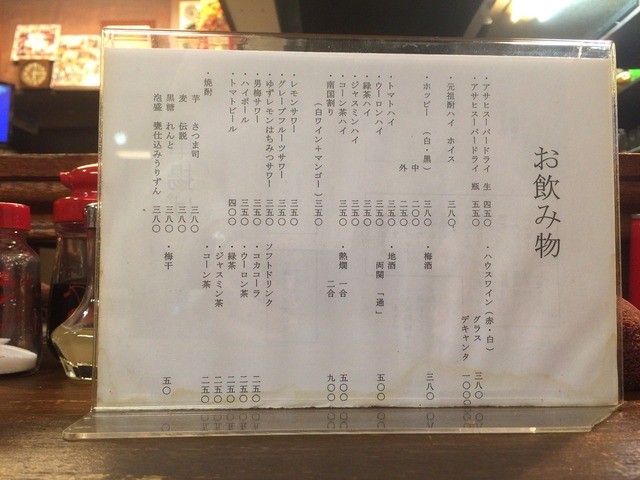 お飲み物
・アサヒスーパードライ 生 四五〇
・アサヒスーパードライ 瓶 五五〇
・元祖酎ハイ ホイス 三八〇
・ホッピー (白・黒) 三八〇
中 二五〇
外 二〇〇
・トマトハイ 三五〇
・ウーロンハイ 三五〇
・緑茶ハイ 三五〇
・ジャスミンハイ 三五〇
・コーン茶ハイ 三五〇
・南国割り
(白ワイン+マンゴー) 三五〇
・レモンサワー 三五〇
・グレープフルーツサワー 三五〇
・ゆずレモンはちみつサワー 三五〇
・男梅サワー 三五〇
・ハイボール 三五〇
・トマトビール 四〇〇
・焼酎
芋 さつま司 三八〇
麦 伝説 三八〇
黒糖 れんと 三八〇
泡盛 甕仕込みうりずん 三八〇
・ハウスワイン (赤・白)
グラス 三八〇
デキャンタ 一〇〇〇
・梅酒 三八〇
・地酒
両関 「通」 五〇〇
・熱燗 一合 五〇〇
二合 九〇〇
ソフトドリンク
・コカコーラ 二五〇
・ウーロン茶 二五〇
・緑茶 二五〇
・ジャスミン茶 二五〇
・コーン茶 二五〇
・梅干 五〇